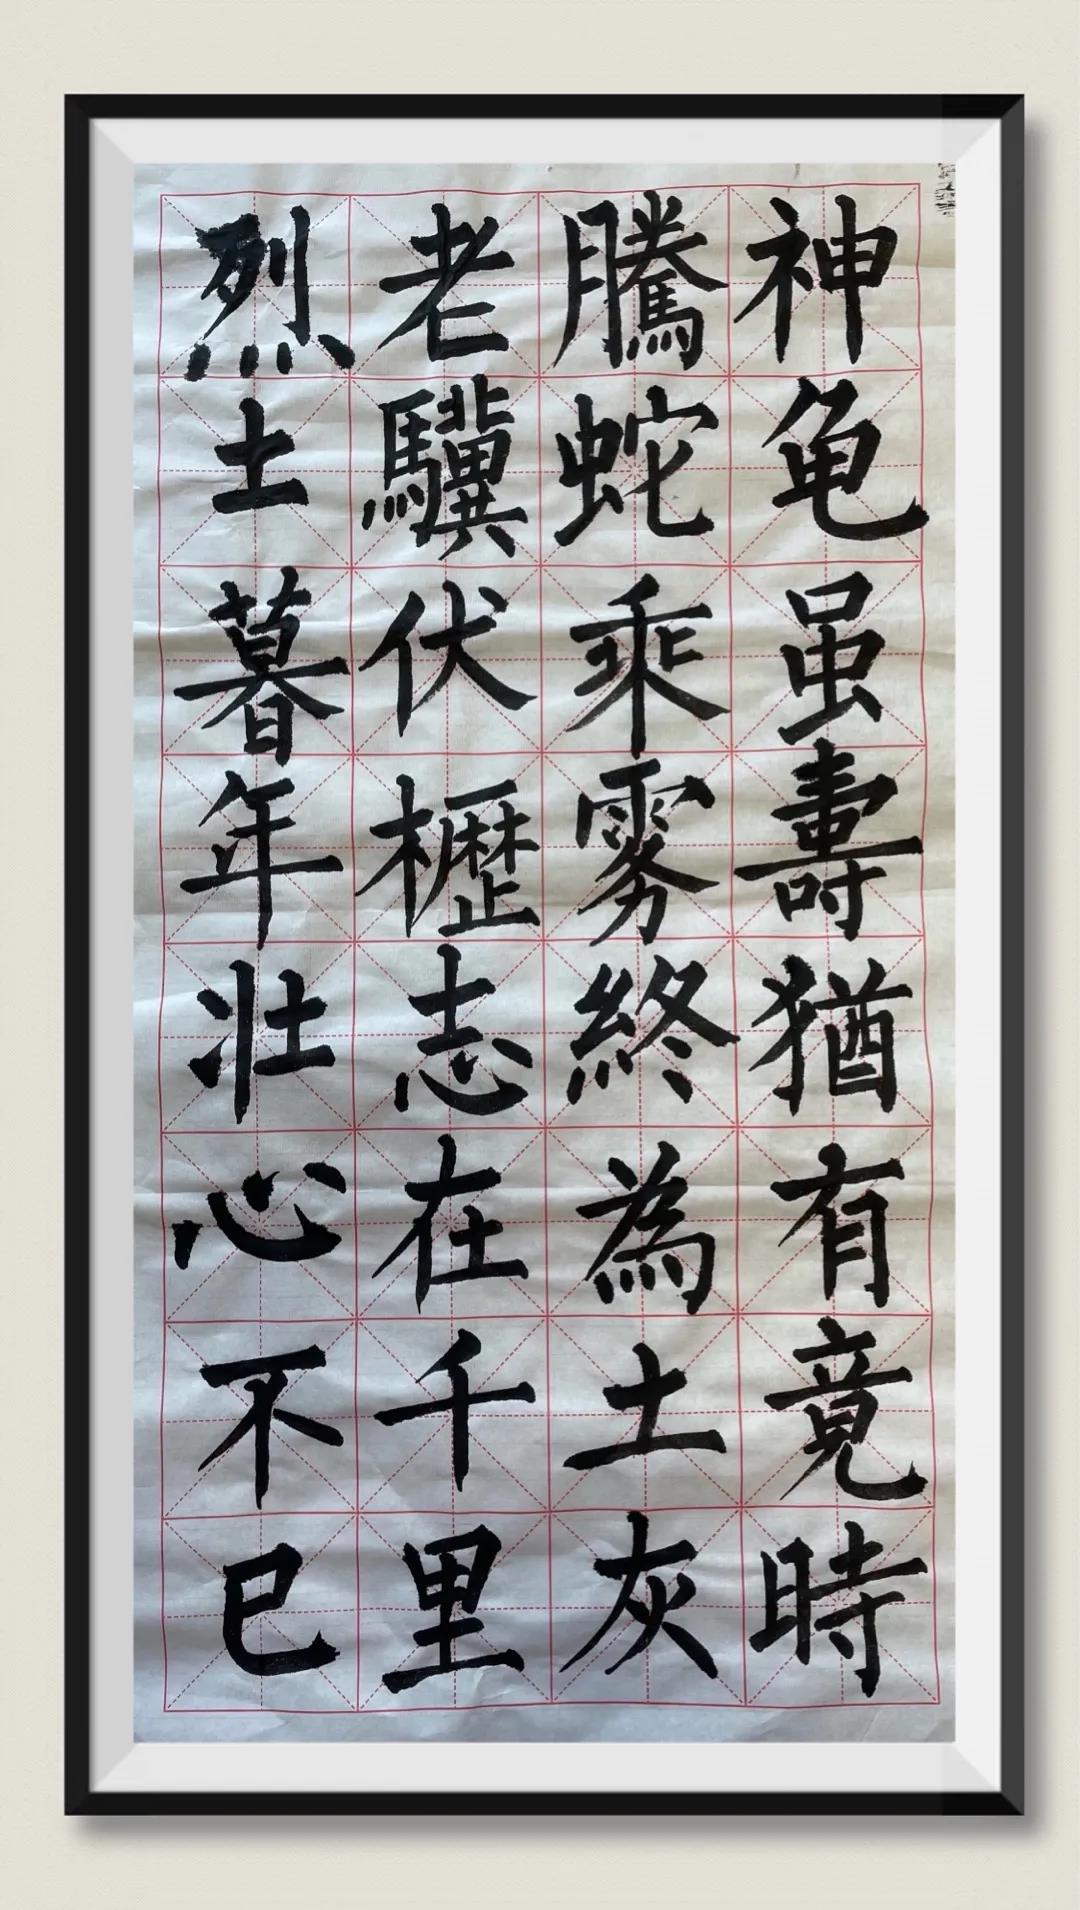 神龟虽壽猶有竟時
騰蛇乘雾終為土灰
老驥伏櫪志在千里
烈士暮年壯心不已